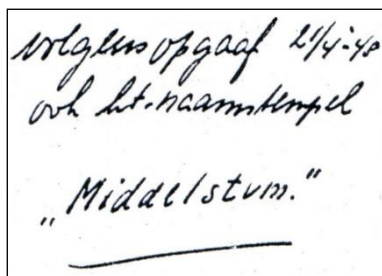 volgens opgaaf 21/4-'40
ook let.naamstempel
„Middelstum."